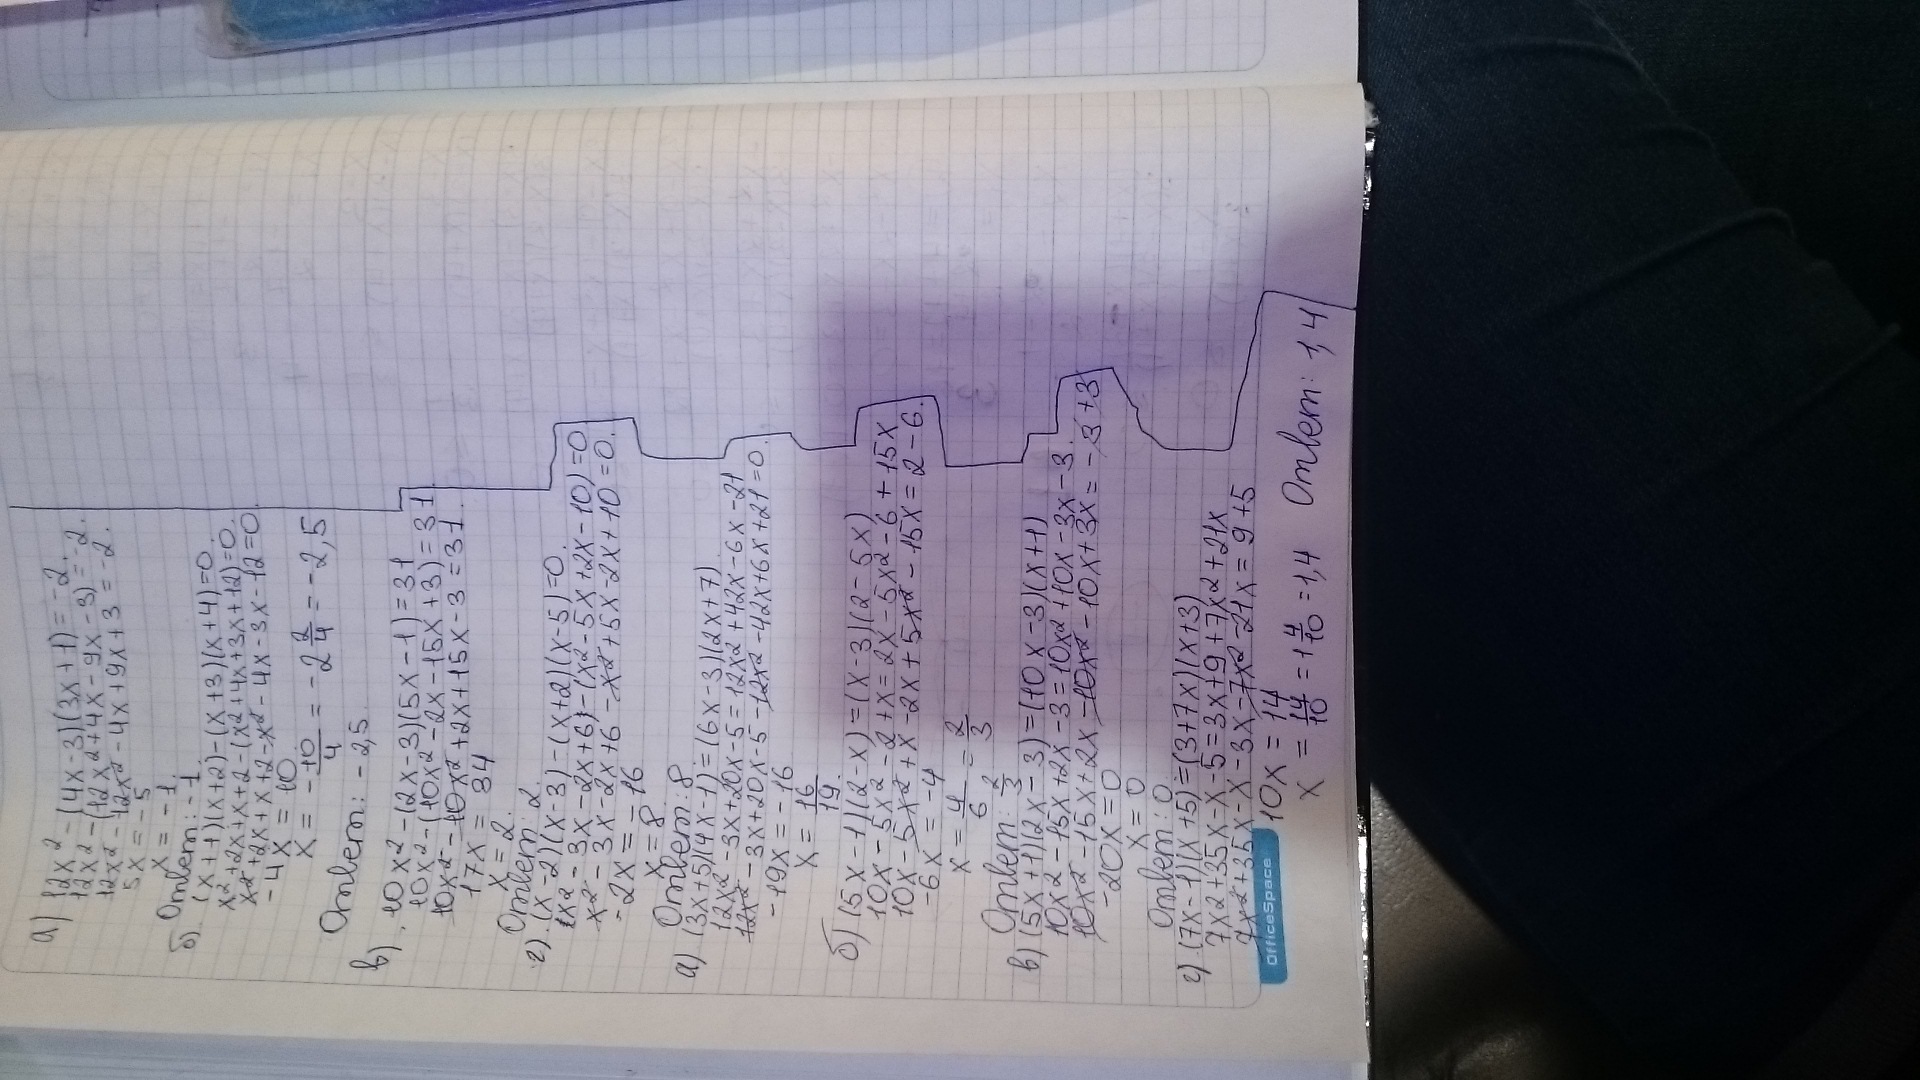 а) 12x² - (4x - 3)(3x + 1) = -2.
12x² - (12x² + 4x - 9x - 3) = -2.
12x² - 12x² - 4x + 9x + 3 = -2.
5x = -5
x = -1.
Ответ: -1.
б). (x + 1)(x + 2) - (x + 3)(x + 4) = 0.
x² + 2x + x + 2 - (x² + 4x + 3x + 12) = 0.
x² + 2x + x + 2 - x² - 4x - 3x - 12 = 0.
-4x = 10
x = -10/4 = -2 2/4 = -2,5
Ответ: -2,5.
в). 10x² - (2x - 3)(5x - 1) = 31
10x² - (10x² - 2x - 15x + 3) = 31
10x² - 10x² + 2x + 15x - 3 = 31.
17x = 34
x = 2.
Ответ: 2.
г). (x - 2)(x - 3) - (x + 2)(x - 5) = 0.
x² - 3x - 2x + 6) - (x² - 5x + 2x - 10) = 0
x² - 3x - 2x + 6 - x² + 5x - 2x + 10 = 0.
-2x = -16
x = 8.
Ответ: 8
а) (3x + 5)(4x - 1) = (6x - 3)(2x + 7)
12x² - 3x + 20x - 5 = 12x² + 42x - 6x - 21
12x² - 3x + 20x - 5 - 12x² - 42x + 6x + 21 = 0.
-19x = -16
x = 16/19.
б) (5x - 1)(2 - x) = (x - 3)(2 - 5x)
10x - 5x² - 2 + x = 2x - 5x² - 6 + 15x
10x - 5x² + x - 2x + 5x² - 15x = 2 - 6.
-6x = -4
x = 4/6 = 2/3
Ответ: 2/3
в) (5x + 1)(2x - 3) = (10x - 3)(x + 1)
10x² - 15x + 2x - 3 = 10x² + 10x - 3x - 3.
10x² - 15x + 2x - 10x² - 10x + 3x = -3 + 3
-20x = 0
x = 0
Ответ: 0
г). (7x - 1)(x + 5) = (3 + 7x)(x + 3)
7x² + 35x - x - 5 = 3x + 9 + 7x² + 21x
7x² + 35x - x - 3x - 7x² - 21x = 9 + 5
10x = 14
x = 14/10 = 1 4/10 = 1,4 Ответ: 1,4
OfficeSpace